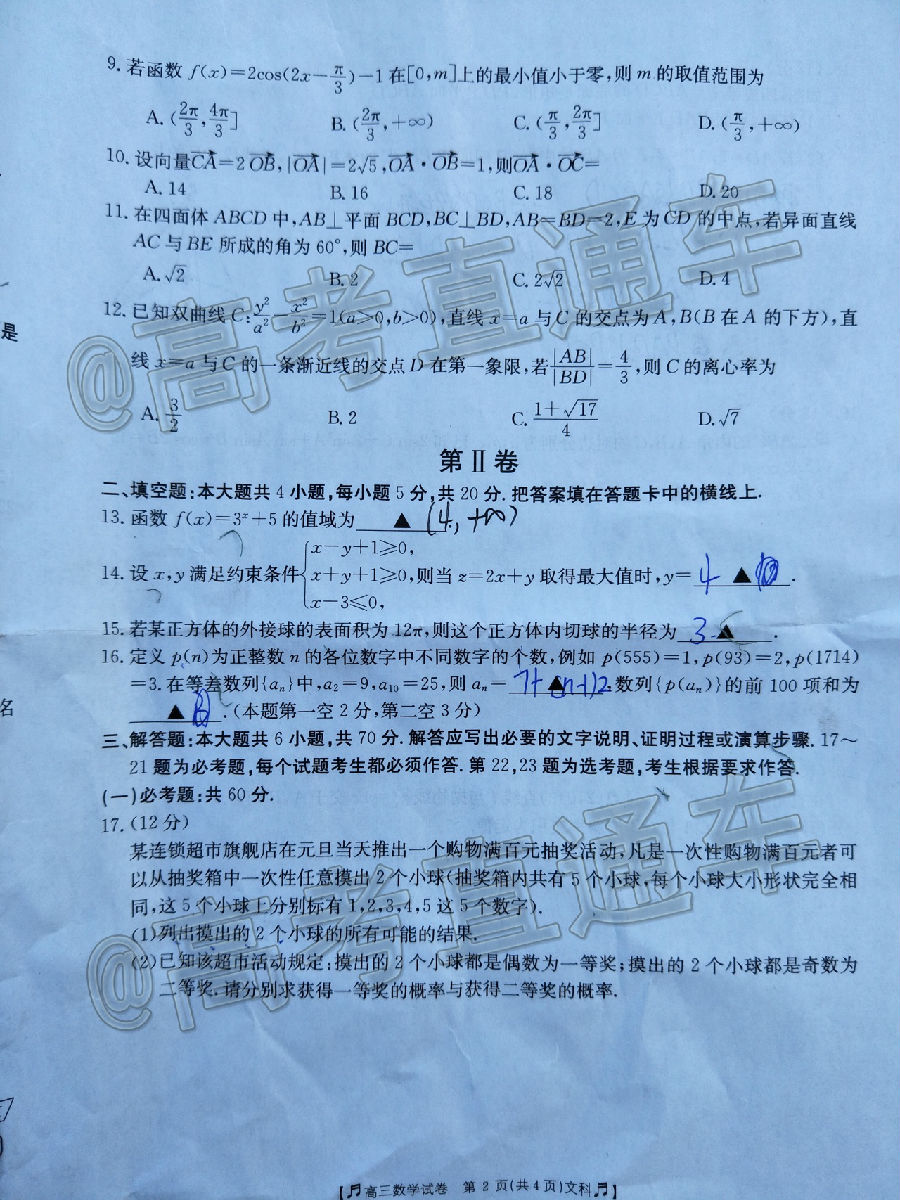 9. 若函数 f(x)=2cos(2x-π/3)-1在[0,m]上的最小值小于零,则 m 的取值范围为
A. (2π/3,4π/3] B. (2π/3,+∞) C. (π/3,2π/3] D. (π/3,+∞)
10. 设向量CA=2OB,|OA|=2√5,OA·OB=1,则OA·OC=
A. 14 B. 16 C. 18 D. 20
11. 在四面体 ABCD 中,AB⊥平面 BCD,BC⊥BD,AB=BD=2,E 为 CD 的中点,若异面直线
AC 与 BE 所成的角为 60°,则 BC=
A. √2 B. 2 C. 2√2 D. 4
12. 已知双曲线 C:y²/a²-x²/b²=1(a>0,b>0),直线 x=a 与 C 的交点为 A,B(B 在 A 的下方),直
线 x=a 与 C 的一条渐近线的交点 D 在第一象限,若|AB|/|BD|=4/3,则 C 的离心率为
A. 3/2 B. 2 C. (1+√17)/4 D. √7
第Ⅱ卷
二、填空题:本大题共 4 小题,每小题 5 分,共 20 分. 把答案填在答题卡中的横线上.
13. 函数 f(x)=3ˣ+5 的值域为 ▲ (4,+∞)
14. 设 x,y 满足约束条件{x-y+1≥0, x+y+1≥0, x-3≤0, 则当 z=2x+y 取得最大值时,y= 4 ▲ .
15. 若某正方体的外接球的表面积为 12π,则这个正方体内切球的半径为 3 ▲ .
16. 定义 p(n)为正整数 n 的各位数字中不同数字的个数,例如 p(555)=1,p(93)=2,p(1714)
=3. 在等差数列{aₙ}中,a₂=9,a₁₀=25,则 aₙ= 7+ ▲ (n+1)2 ,数列{p(aₙ)}的前 100 项和为
▲ .(本题第一空 2 分,第二空 3 分)
三、解答题:本大题共 6 小题,共 70 分. 解答应写出必要的文字说明、证明过程或演算步骤. 17~
21 题为必考题,每个试题考生都必须作答. 第 22,23 题为选考题,考生根据要求作答.
(一)必考题:共 60 分.
17. (12 分)
某连锁超市旗舰店在元旦当天推出一个购物满百元抽奖活动,凡是一次性购物满百元者可
以从抽奖箱中一次性任意摸出 2 个小球(抽奖箱内共有 5 个小球,每个小球大小形状完全相
同,这 5 个小球上分别标有 1,2,3,4,5 这 5 个数字).
(1)列出摸出的 2 个小球的所有可能的结果.
(2)已知该超市活动规定:摸出的 2 个小球都是偶数为一等奖;摸出的 2 个小球都是奇数为
二等奖. 请分别求获得一等奖的概率与获得二等奖的概率.
【高三数学试卷 第 2 页(共 4 页)文科】
是
名
@高考直通车
@高考直通车